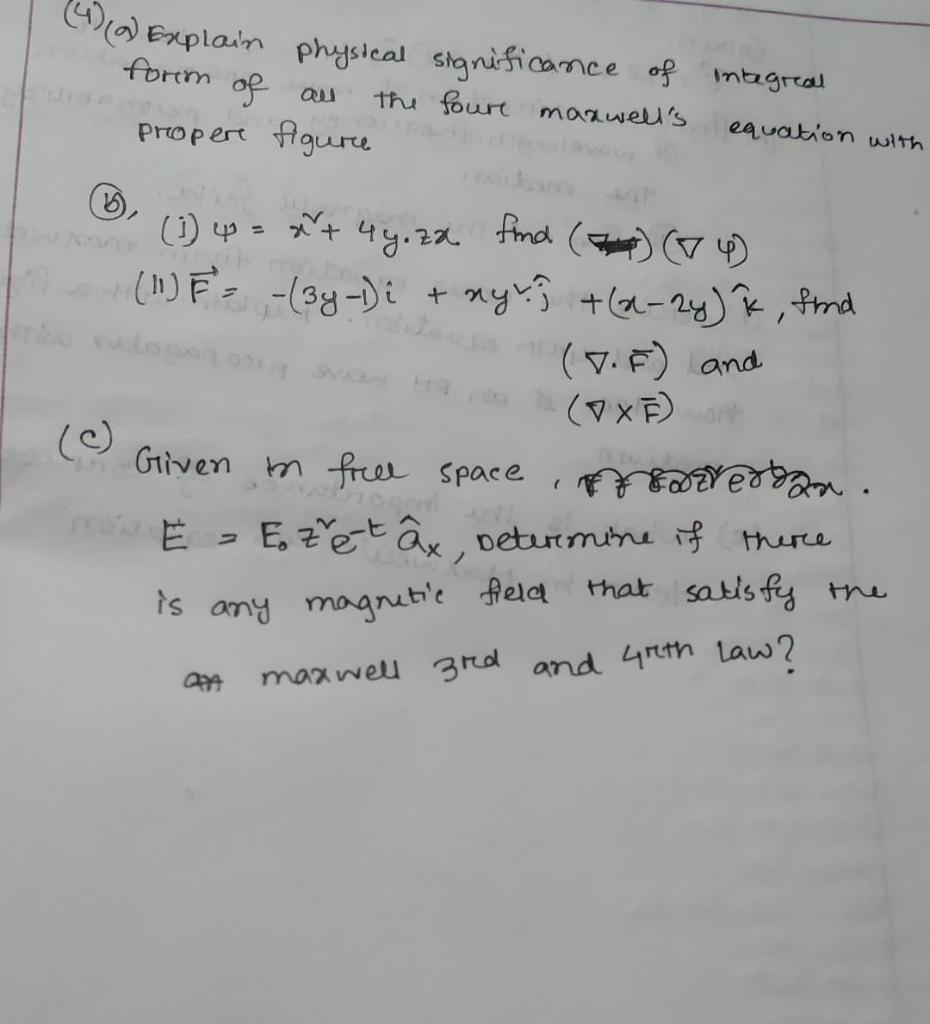 (4)(a) Explain physical significance of integral
form of all the four maxwell's equation with
proper figure
(b), (i) ψ = x² + 4y.zx find (∇ψ)
(ii) F⃗ = -(3y-1)î + xy²ĵ + (x-2y) k̂, find
(∇.F̄) and
(∇×F̄)
(c) Given in free space,
E = E₀ z²e⁻ᵗ âₓ, Determine if there
is any magnetic field that satisfy the
maxwell 3rd and 4rth law?